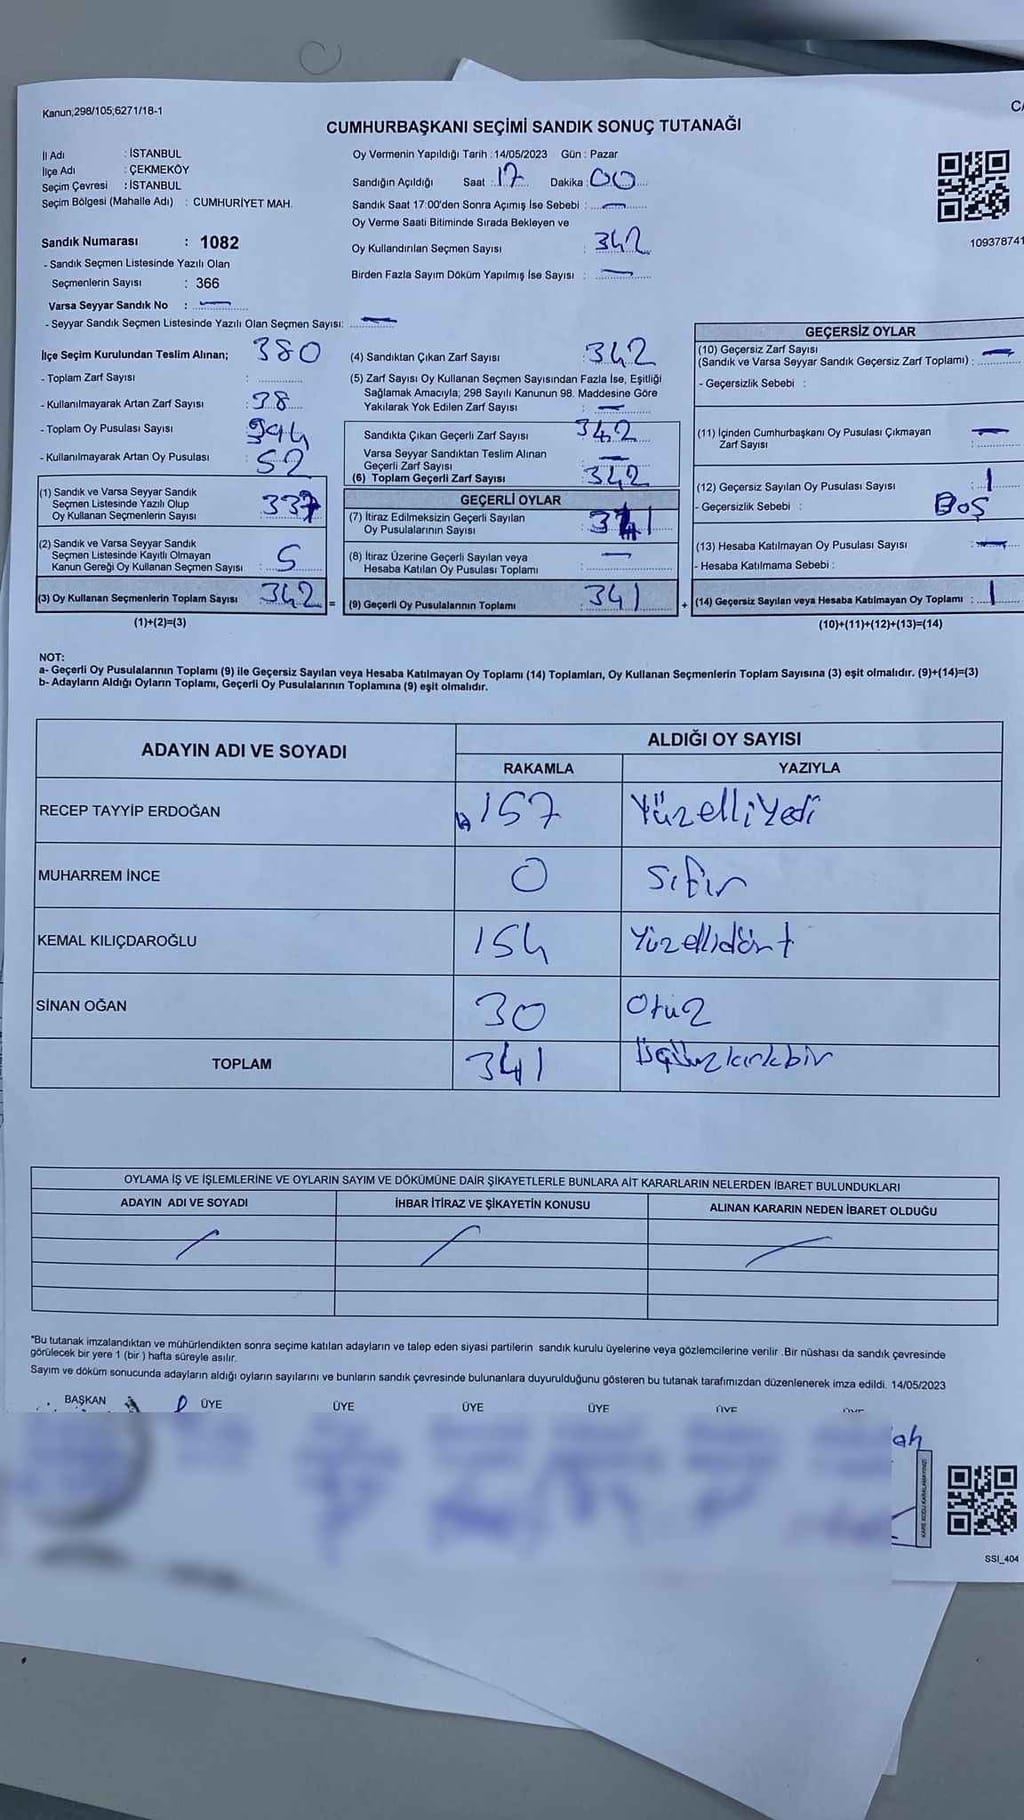 Kanun,298/105,6271/18-1
CUMHURBAŞKANI SEÇİMİ SANDIK SONUÇ TUTANAĞI
İl Adı : İSTANBUL
İlçe Adı : ÇEKMEKÖY
Seçim Çevresi : İSTANBUL
Seçim Bölgesi (Mahalle Adı) : CUMHURİYET MAH.
Oy Vermenin Yapıldığı Tarih :14/05/2023 Gün : Pazar
Sandığın Açıldığı Saat : 17 Dakika : 00
Sandık Saat 17:00'den Sonra Açımış İse Sebebi : —
Oy Verme Saati Bitiminde Sırada Bekleyen ve
Oy Kullandırılan Seçmen Sayısı : 342
Birden Fazla Sayım Döküm Yapılmış İse Sayısı : —
109378741
Sandık Numarası : 1082
- Sandık Seçmen Listesinde Yazılı Olan
Seçmenlerin Sayısı : 366
Varsa Seyyar Sandık No : —
- Seyyar Sandık Seçmen Listesinde Yazılı Olan Seçmen Sayısı: —
İlçe Seçim Kurulundan Teslim Alınan; 380
- Toplam Zarf Sayısı :
- Kullanılmayarak Artan Zarf Sayısı : 38
- Toplam Oy Pusulası Sayısı : 394
- Kullanılmayarak Artan Oy Pusulası : 52
(1) Sandık ve Varsa Seyyar Sandık
Seçmen Listesinde Yazılı Olup
Oy Kullanan Seçmenlerin Sayısı : 337
(2) Sandık ve Varsa Seyyar Sandık
Seçmen Listesinde Kayıtlı Olmayan
Kanun Gereği Oy Kullanan Seçmen Sayısı : 5
(3) Oy Kullanan Seçmenlerin Toplam Sayısı 342 =
(1)+(2)=(3)
(4) Sandıktan Çıkan Zarf Sayısı : 342
(5) Zarf Sayısı Oy Kullanan Seçmen Sayısından Fazla İse, Eşitliği
Sağlamak Amacıyla; 298 Sayılı Kanunun 98. Maddesine Göre
Yakılarak Yok Edilen Zarf Sayısı : —
Sandıkta Çıkan Geçerli Zarf Sayısı 342
Varsa Seyyar Sandıktan Teslim Alınan
Geçerli Zarf Sayısı —
(6) Toplam Geçerli Zarf Sayısı 342
GEÇERLİ OYLAR
(7) İtiraz Edilmeksizin Geçerli Sayılan
Oy Pusulalarının Sayısı : 341
(8) İtiraz Üzerine Geçerli Sayılan veya
Hesaba Katılan Oy Pusulası Toplamı : —
(9) Geçerli Oy Pusulalarının Toplamı 341 +
GEÇERSİZ OYLAR
(10) Geçersiz Zarf Sayısı
(Sandık ve Varsa Seyyar Sandık Geçersiz Zarf Toplamı) : —
- Geçersizlik Sebebi :
(11) İçinden Cumhurbaşkanı Oy Pusulası Çıkmayan
Zarf Sayısı : —
(12) Geçersiz Sayılan Oy Pusulası Sayısı : 1
- Geçersizlik Sebebi : Boş
(13) Hesaba Katılmayan Oy Pusulası Sayısı : —
- Hesaba Katılmama Sebebi :
(14) Geçersiz Sayılan veya Hesaba Katılmayan Oy Toplamı : 1
(10)+(11)+(12)+(13)=(14)
NOT:
a- Geçerli Oy Pusulalarının Toplamı (9) ile Geçersiz Sayılan veya Hesaba Katılmayan Oy Toplamı (14) Toplamları, Oy Kullanan Seçmenlerin Toplam Sayısına (3) eşit olmalıdır. (9)+(14)=(3)
b- Adayların Aldığı Oyların Toplamı, Geçerli Oy Pusulalarının Toplamına (9) eşit olmalıdır.
ADAYIN ADI VE SOYADI
ALDIĞI OY SAYISI
RAKAMLA YAZIYLA
RECEP TAYYİP ERDOĞAN 157 Yüzelliyedi
MUHARREM İNCE 0 sıfır
KEMAL KILIÇDAROĞLU 154 Yüzellidört
SİNAN OĞAN 30 Otuz
TOPLAM 341 Üçyüzkırkbir
OYLAMA İŞ VE İŞLEMLERİNE VE OYLARIN SAYIM VE DÖKÜMÜNE DAİR ŞİKAYETLERLE BUNLARA AİT KARARLARIN NELERDEN İBARET BULUNDUKLARI
ADAYIN ADI VE SOYADI İHBAR İTİRAZ VE ŞİKAYETİN KONUSU ALINAN KARARIN NEDEN İBARET OLDUĞU
"Bu tutanak imzalandıktan ve mühürlendikten sonra seçime katılan adayların ve talep eden siyasi partilerin sandık kurulu üyelerine veya gözlemcilerine verilir .Bir nüshası da sandık çevresinde
görülecek bir yere 1 (bir ) hafta süreyle asılır.
Sayım ve döküm sonucunda adayların aldığı oyların sayılarını ve bunların sandık çevresinde bulunanlara duyurulduğunu gösteren bu tutanak tarafımızdan düzenlenerek imza edildi. 14/05/2023
BAŞKAN ÜYE ÜYE ÜYE ÜYE ÜYE ÜYE
ah
KARE KODU KARALAMAYINIZ!
SSI_404